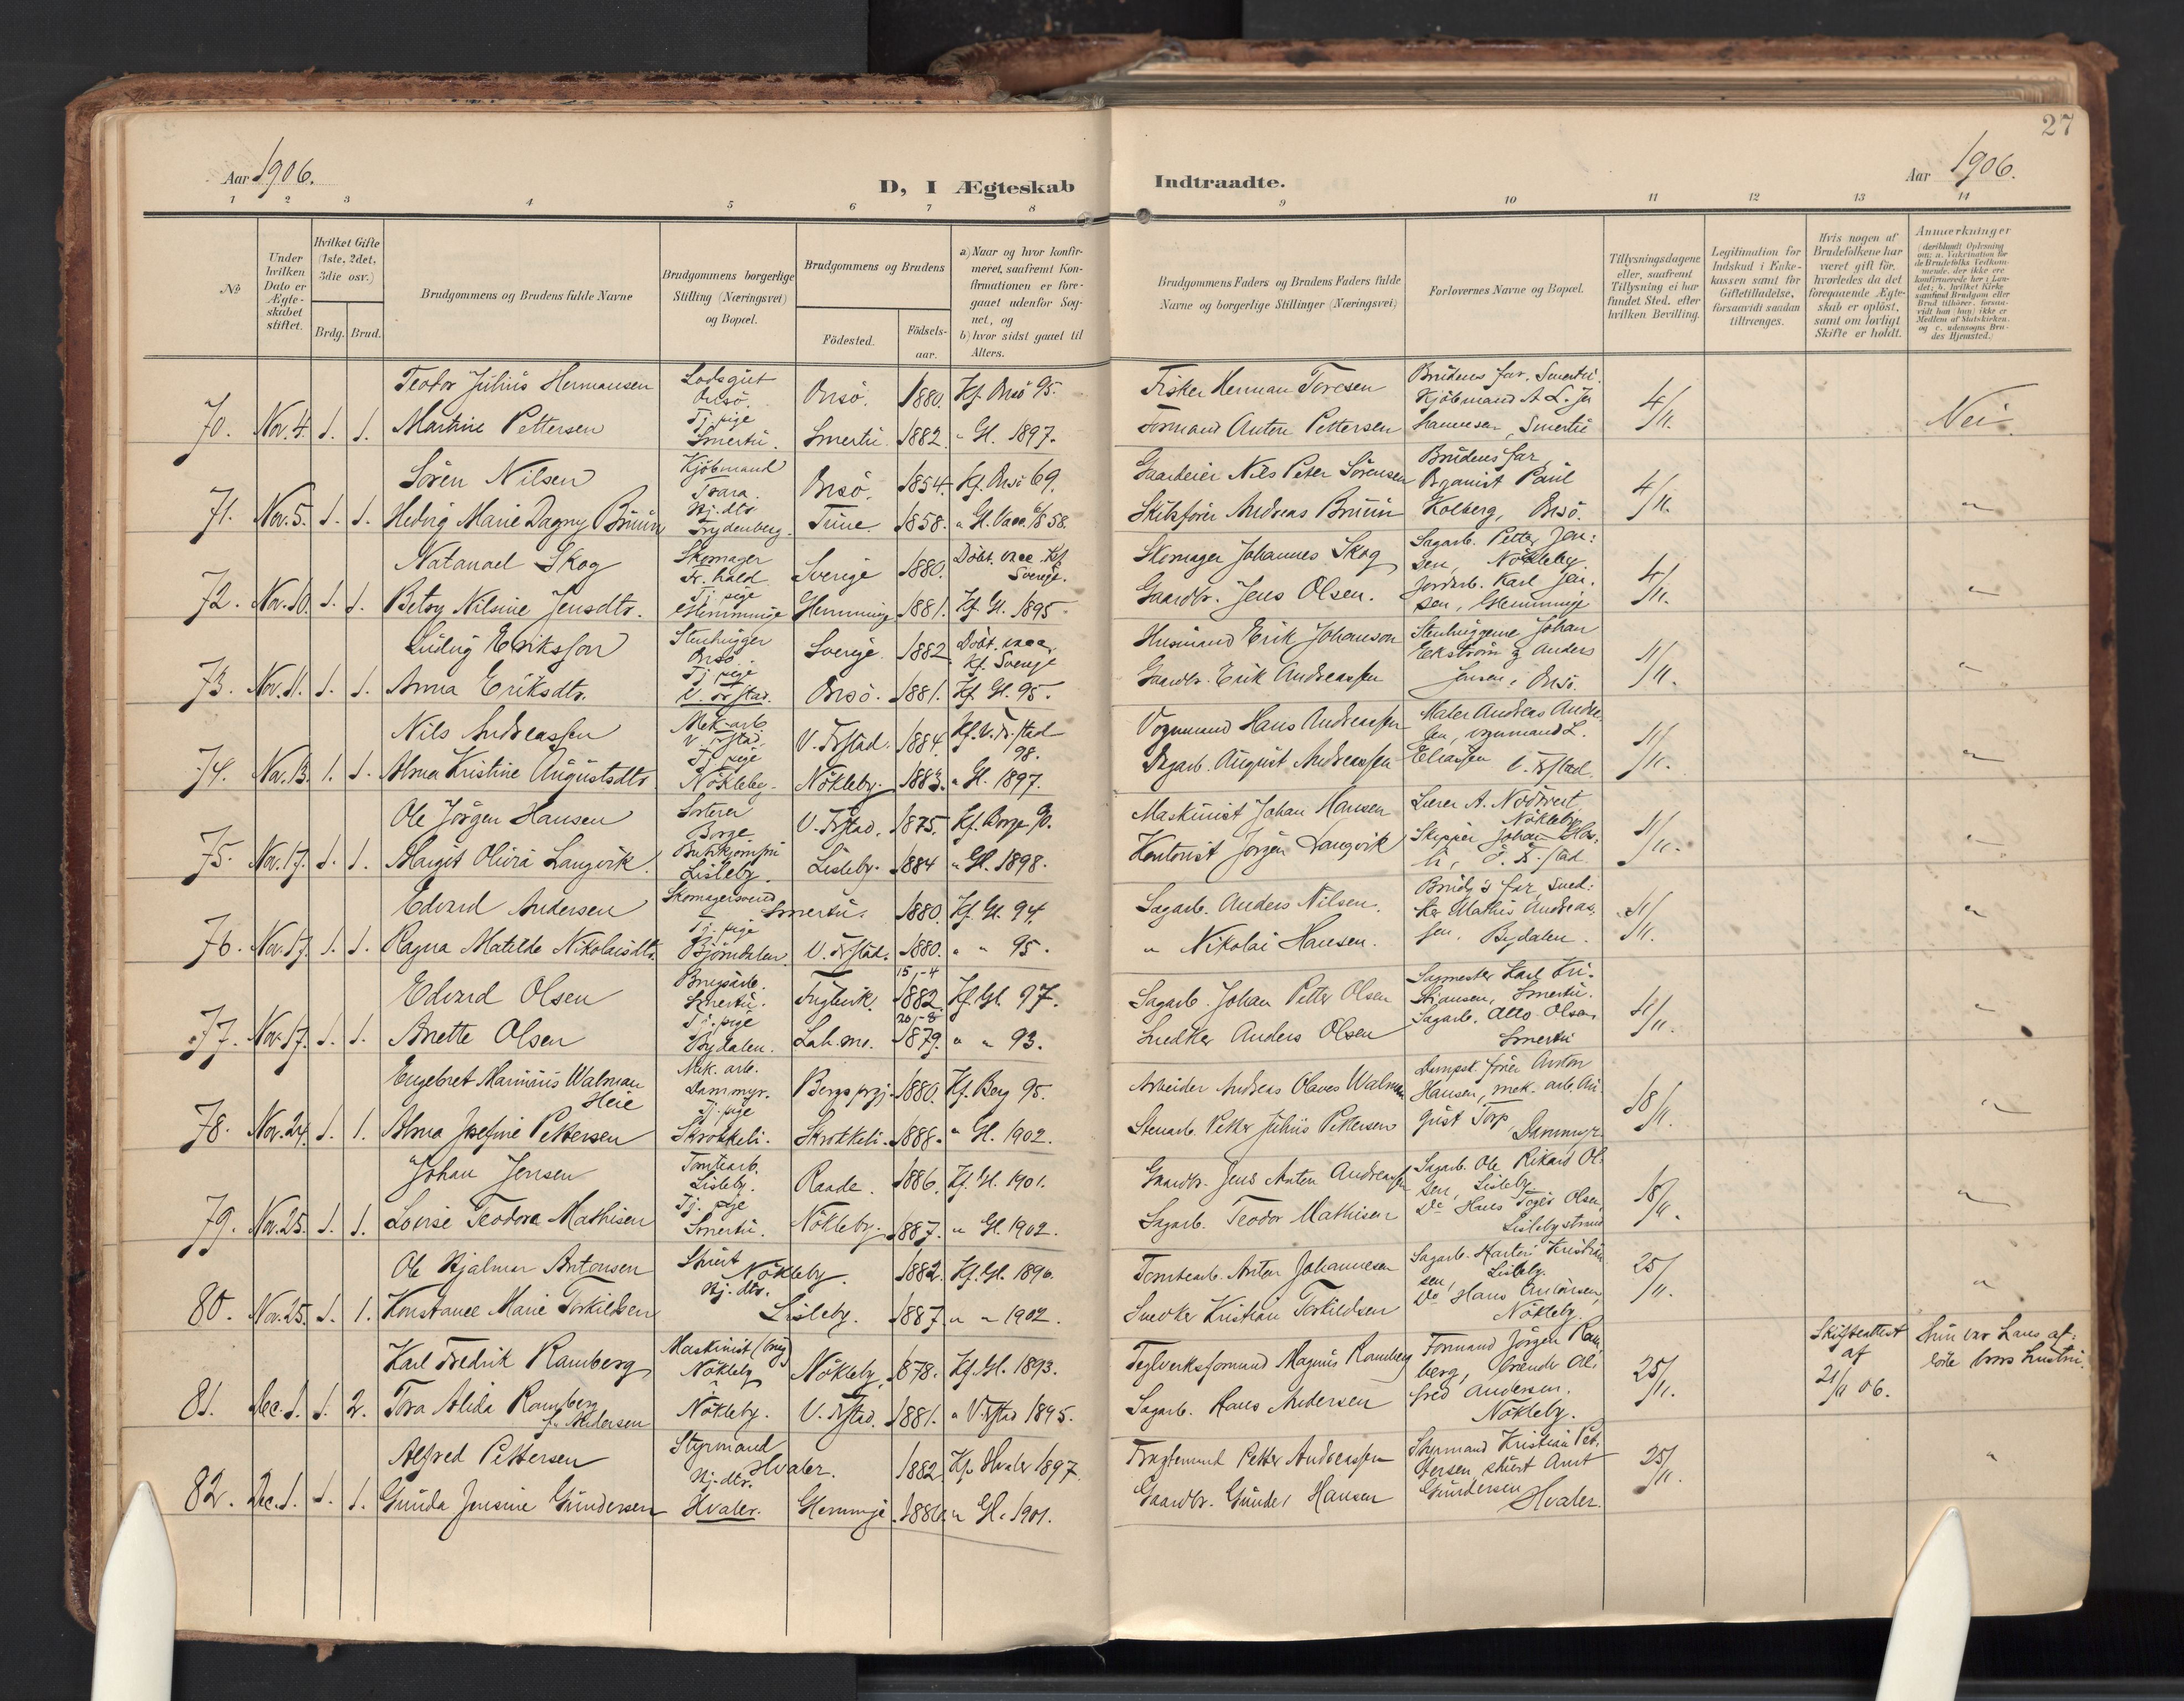 27
Aar 1906.
D, I Ægteskab Indtraadte.
Aar 1906.
1 2 3 4 5 6 7 8 9 10 11 12 13 14
No
Under hvilken Dato er Ægteskabet stiftet.
Hvilket Gifte (1ste, 2det, 3die osv.)
Brdg. Brud.
Brudgommens og Brudens fulde Navne
Brudgommens borgerlige Stilling (Næringsvei) og Bopæl.
Brudgommens og Brudens
Födested.
Födsels-aar.
a) Naar og hvor konfirmeret, saafremt Konfirmationen er foregaaet udenfor Sognet, og
b) hvor sidst gaaet til Alters.
Brudgommens Faders og Brudens Faders fulde Navne og borgerlige Stillinger (Næringsvei)
Forlovernes Navne og Bopæl.
Tillysningsdagene eller, saafremt Tillysning ei har fundet Sted, efter hvilken Bevilling.
Legitimation for Indskud i Enkekassen samt for Giftetilladelse, forsaavidt saadan tiltrænges.
Hvis nogen af Brudefolkene har været gift før, hvorledes da det foregaaende Ægteskab er oplöst, samt om lovligt Skifte er holdt.
Anmærkninger
Teodor Julius Hermansen Lodsgut Onsö. Onsö. 1880. Kf. Onsö 95. Fisker Herman Toresen Brudens far, Smertu.
70. Nov. 4. 1. 1. Martine Pettersen Tj. pige Smertu. Smertu 1882. " Gl. 1897. Formand Anton Pettersen Kjöbmand A. L. Johannesen, Smertu 4/11. Nei.
Sören Nilsen Kjöbmand Tvara. Onsö. 1854. Kf. Onsö 69. Gaardeier Nils Peter Sörensen Brudens far,
71. Nov. 5. 1. 1. Hedvig Marie Dagny Bruun Hj. dtr Trune 1858. Skibsförer Andreas Bruun Organist Paul Kolberg, Onsö. 4/11. "
Natanael Skog Skomager Fr.hald Sverige 1880. Döbt. vacc. Kf. Sverige. Skomager Johannes Skog Sagarb. Petter Jensen, Nökleby.
72. Nov. 10. 1. 1. Betsy Nilsine Jensdtr. Tj. pige Glemminge Glemminge 1881. Kf. Gl. 1895. Gaardbr. Jens Olsen. Jordarb. Karl Jensen, Glemminge 4/11. "
Ludvig Eriksson Stenhugger Onsö. Sverige 1882 Döbt. vacc. Kf. Sverige Husmand Erik Johanson Stenhuggerne Johan
73. Nov. 11. 1. 1. Anna Eriksdtr. Tj. pige V. Fr.stad. Onsö. 1881. Kf. Gl. 95. Gaardbr. Erik Andreassen Ekström og Anders Jensen, Onsö. 11/11. "
Nils Andreassen Mek. arb. V. Fr.stad. V. Fr.stad. 1884. Kf. V. Fr.stad 98. Vognmand Hans Andreassen Maler Andreas Andersen, vognmand L.
74. Nov. 13. 1. 1. Alma Kristine Augustsdtr. Tj. pige Nökleby. Nökleby. 1883. " Gl. 1897. Dagarb. August Andreassen Eliassen V. Fr.stad. 11/11. "
Ole Jörgen Hansen Sorterer Borge V. Fr.stad. 1875. Kf. Borge 90. Maskinist Johan Hansen Lærer A. Nökleby
75. Nov. 17. 1. 1. Margit Olivia Langvik Butikjomfru Lisleby. Lisleby. 1884 " Gl. 1898. Kontorist Jörgen Langvik Skipper Johan 11/11. "
Edvard Andersen Skomagersvend Smertu. 1880. Kf. Gl. 94. Sagarb. Anders Nilsen. Brudg's far, Snedker
76. Nov. 17. 1. 1. Ragna Matilde Nikolaisdtr. Tj. pige Björndalen. V. Fr.stad. 1880. " " 95. " Nikolai Hansen. Mathis Andreassen, Bydalen. 11/11. "
Edvard Olsen Brugsarb. Smertu. Fuglevik. 15/-4 1882 Kf. Gl. 97. Sagarb. Johan Petter Olsen Sagmester Karl Kristiansen, Smertu.
77. Nov. 17. 1. 1. Anette Olsen Tj. pige Bydalen. 20/-8 1879. " " 93. Snedker Anders Olsen Sagarb. Otto Olsen, Smertu 11/11. "
Engebret Marinius Walman Heie Mek. arb. Dammyr. Berg 1880. Kf. Berg 95. Arbeider Andreas Olaves Walman Dampsk. förer Anton
78. Nov. 24. 1. 1. Alma Josefine Pettersen Tj. pige Skrökkeli. Skrökkeli. 1888. " Gl. 1902. Stenarb. Petter Julius Pettersen Hansen, mek. arb. August Torp, Dammyr 18/11. "
Johan Jensen Tomtearb. Lisleby. Raade. 1886. Kf. Gl. 1901. Gaardbr. Jens Anton Andreassen Sagarb. Ole Rikard Olsen, Lisleby
79. Nov. 25. 1. 1. Lovise Teodora Mathisen Tj. pige Smertu. Nökleby. 1887. " Gl. 1902. Sagarb. Teodor Mathisen Do Hans Olsen, Lislebystrand 18/11. "
Ole Hjalmar Antonsen Stuert Nökleby. 1882. Kf. Gl. 1896. Tomtearb. Anton Johannesen Sagarb. Martin Kristiansen, Lisleby.
80. Nov. 25. 1. 1. Konstance Marie Torkildsen Hj. dtr. Lisleby. 1887 " " 1902. Snedker Kristian Torkildsen Do Hans Nökleby 25/11. "
Karl Fredrik Ramberg Maskinist (brug) Nökleby Nökleby. 1878. Kf. Gl. 1893. Teglverksformand Magnus Ramberg Formand Jörgen Ramberg, Skifteattest af 21/11 06.
81. Dec. 1. 1. 2. Tora Alida Ramberg f. Andersen Nökleby. V. Fr.stad. 1881. " V. Fr.stad 1895. Sagarb. Hans Andersen Alfred Andersen. Nökleby. 25/11. Hun var hans afdöde brors hustru.
Alfred Pettersen Styrmand Hvaler. 1882 Kf. Hvaler 1897. Fragtemand Petter Andreassen Styrmand Kristian Pettersen,
82. Dec. 1. 1. 1. Gunda Jensine Gundersen Hj. dtr. Hvaler. Glemminge 1880. " Gl. 1901. Gaardbr. Gunder Hansen stuert Arnt Gundersen Hvaler. 25/11. "